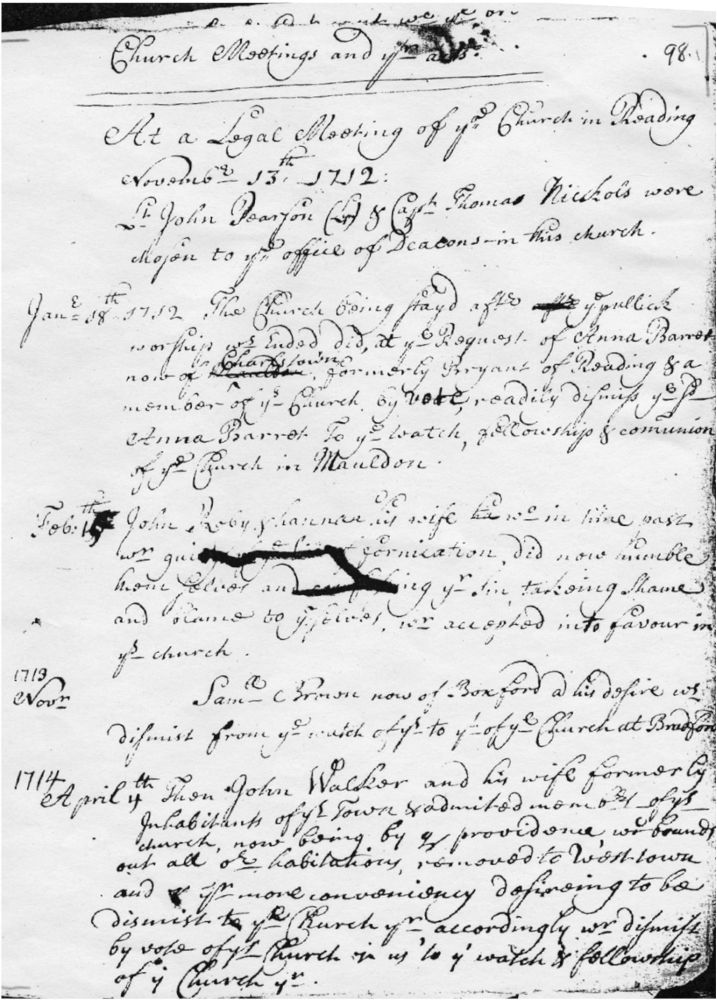 Church Meetings and yr acts. 98.
At a Legal Meeting of ye Church in Reading
Novembr 13th 1712:
Lt John Pearson & Capt Thomas Nickols were
chosen to ye office of Deacons in this church.
Janr 18th 1712 The Church being stayd after ye publick
worship ws Ended did, at ye Request of Anna Barret
now of Charlstown, formerly Bryant of Reading & a
member of ys Church, by vote, readily dismiss ye sd
Anna Barret To ye watch, fellowship & comunion
of ye Church in Mauldon.
Feb: 15th John Roby & hannah his wife who in time past
wr guilty fornication, did now humble
them selves and ing yr sin, takeing shame
and blame to ymselves, wr accepted into favour in
ys church.
1713
Novr Samll Brown now of Boxford at his desire ws
dismist from ye watch of ys to yt of ye Church at Bradford
1714
April 4th Then John Walker and his wife formerly
Inhabitants of ys Town & admited membrs of ys
church, now being by providence, wo bounds
out all or habitations, removed to Westtown
and yr more conveniency desireing to be
dismist to ye Church yr accordingly wr dismist
by vote of ys Church in us to ye watch & fellowship
of ye Church yr.